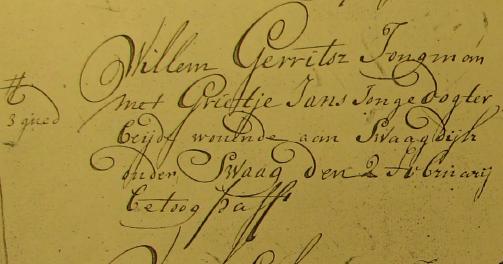 Willem Gerritsz Jongman
met Grietje Jans Jonge Dogter
beijde wonende aan Swaagdijk
onder Swaag den 2 Februarij
betoog past